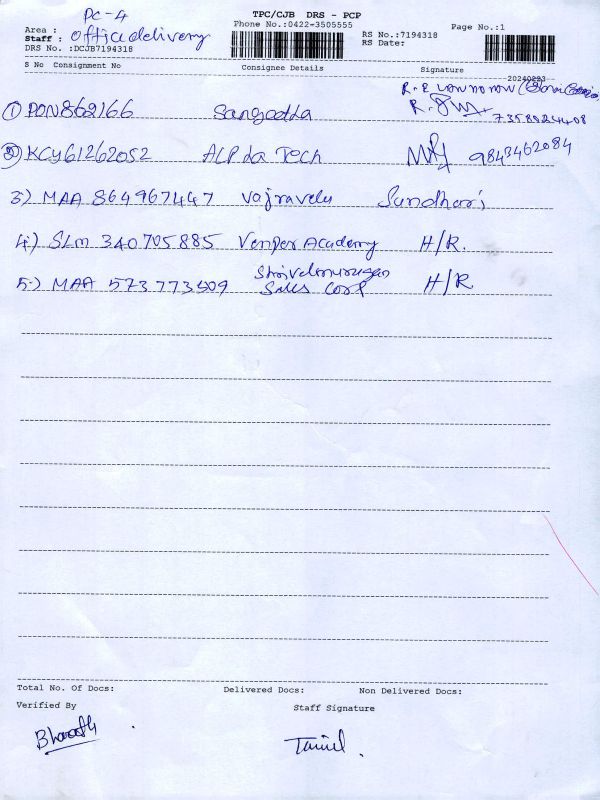 PC-4
TPC/CJB DRS - PCP
Phone No.:0422-3505555
Page No.:1
Area :
Staff : office delivery
RS No.:7194318
DRS No. :DCJB7194318
RS Date:
S No Consignment No Consignee Details Signature
20240223
① PON862166 Sangeetha 7358924408
② KCY61262052 ALPda Tech 9843462084
3) MAA 864967447 Vajravelu Sundhari
4) SLM 340705885 Venper Academy H/R.
5) MAA 573773509 Shrivelmurugan Sales Corp H/R
Total No. Of Docs: Delivered Docs: Non Delivered Docs:
Verified By Staff Signature
Bharath
Tamil.